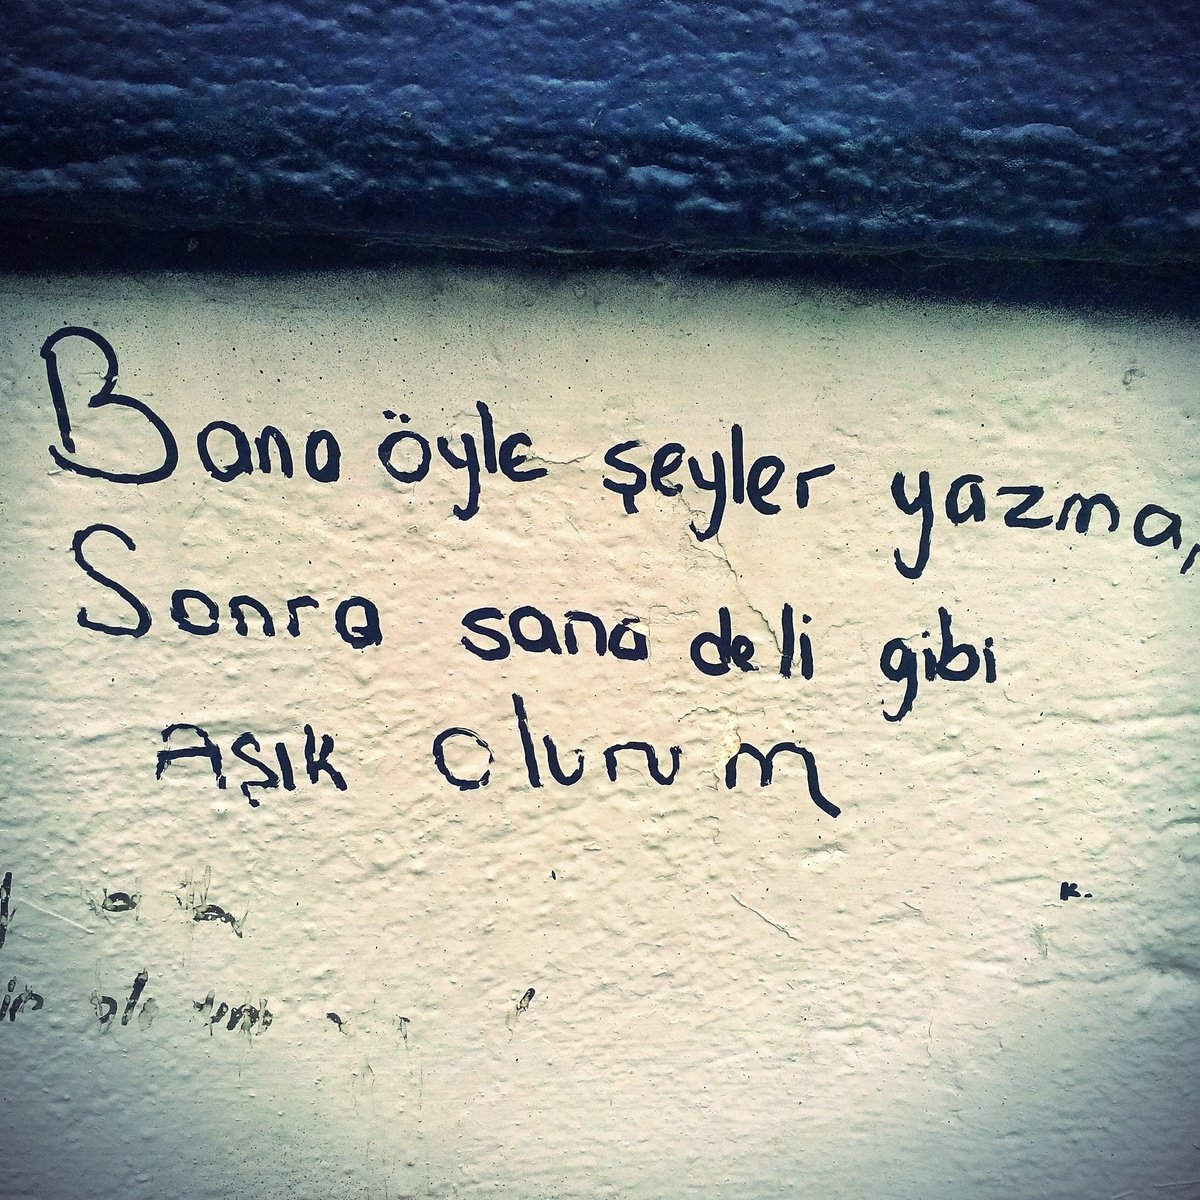 Bana öyle şeyler yazma,
Sonra sana deli gibi
Aşık olurum
K.